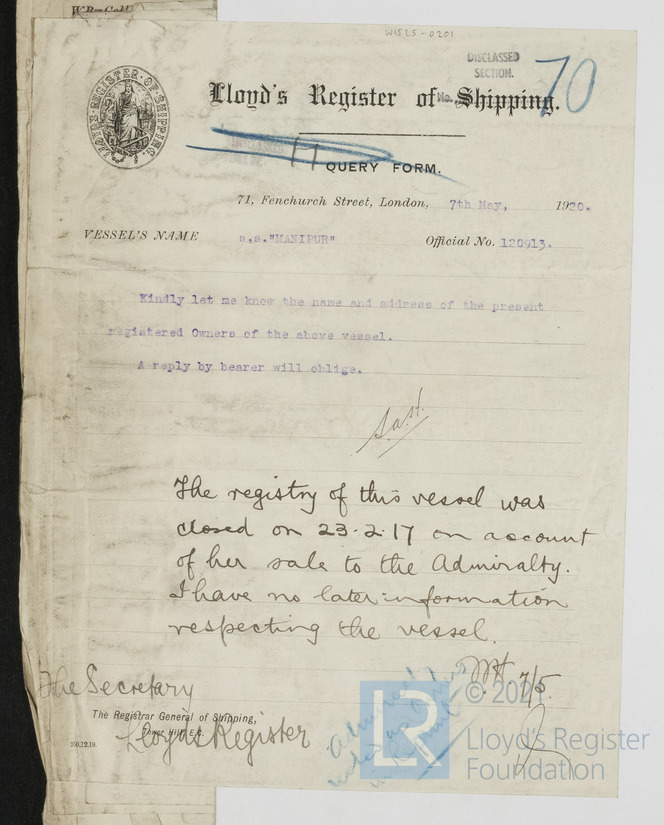 W1525-0201
DISCLASSED
SECTION.
70
LLOYD'S REGISTER OF SHIPPING
Lloyd's Register of Shipping.
No.
QUERY FORM.
71, Fenchurch Street, London, 7th May, 1920.
VESSEL'S NAME s.s."MANIPUR" Official No. 120913.
Kindly let me know the name and address of the present
registered Owners of the above vessel.
A reply by bearer will oblige.
The registry of this vessel was
closed on 23.2.17 on account
of her sale to the Admiralty.
I have no later information
respecting the vessel.
7/5.
The Secretary
The Registrar General of Shipping,
Tower Hill, E.C.
Lloyds Register
LR
Lloyd's Register
Foundation